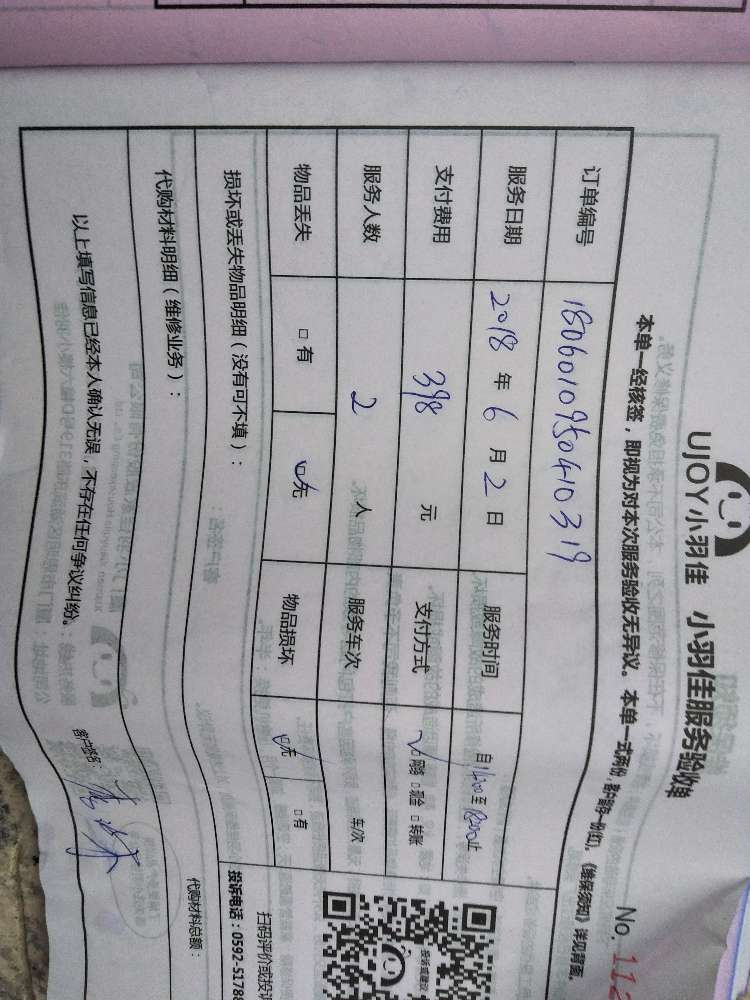 UJOY小羽佳 小羽佳服务验收单
No. 112
本单一经核签，即视为对本次服务验收无异议。本单一式两份，客户留存一份(红)。《维保须知》详见背面。
订单编号 1806010950410319
服务日期 2018年6月2日 服务时间 自1400至1800止
支付费用 398元 支付方式 ☑网络 □现金 □转账
服务人数 2人 服务车次 车/次
物品丢失 □有 ☑无 物品损坏 ☑无 □有
损坏或丢失物品明细（没有可不填）：
代购材料明细（维修业务）： 代购材料总额：
以上填写信息已经本人确认无误，不存在任何争议纠纷。 客户签名：
投诉或建议
扫码评价或投诉
投诉电话：0592-5178